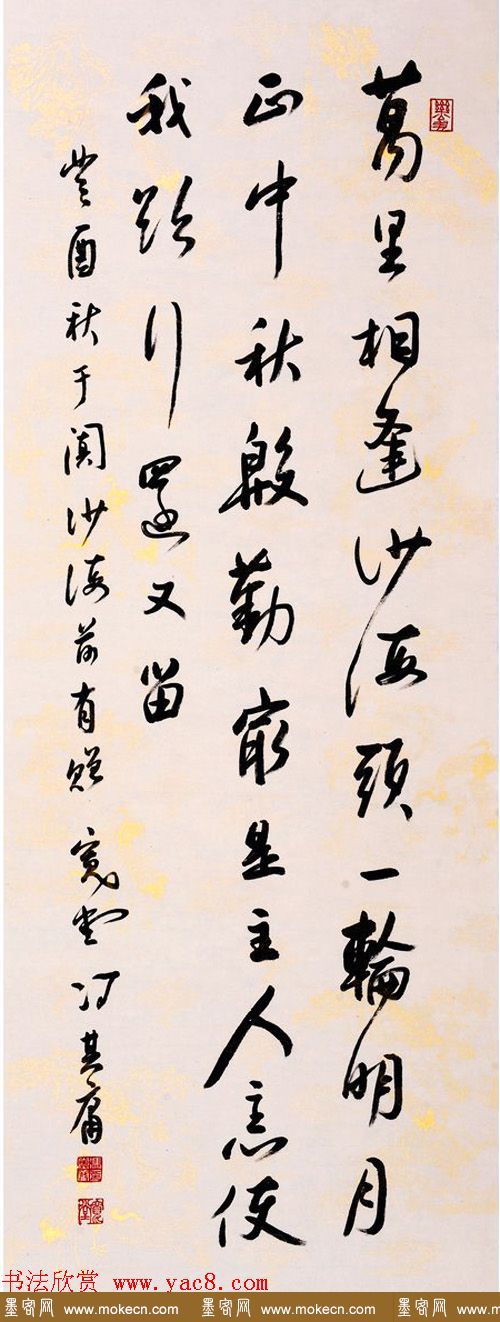 萬里相逢沙海頭一輪明月
正中秋殷勤最是主人意使
我欲行還又留
癸酉秋于闐沙海前有贈 寬堂馮其庸
书法欣赏 www.yac8.com
墨客网 www.mokecn.com 墨客网 www.mokecn.com 墨客网 www